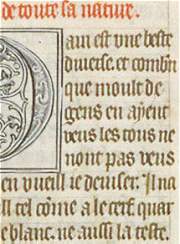 de toute sa nature.
Dain est vne beste
diuerse. et combñ
que moult de
gens en aÿent
veus les tous ne
nont pas veus
en vueil ie deuiser. Il na
il tel cõme a le cerf. quar
e blanc. ne aussi la teste.